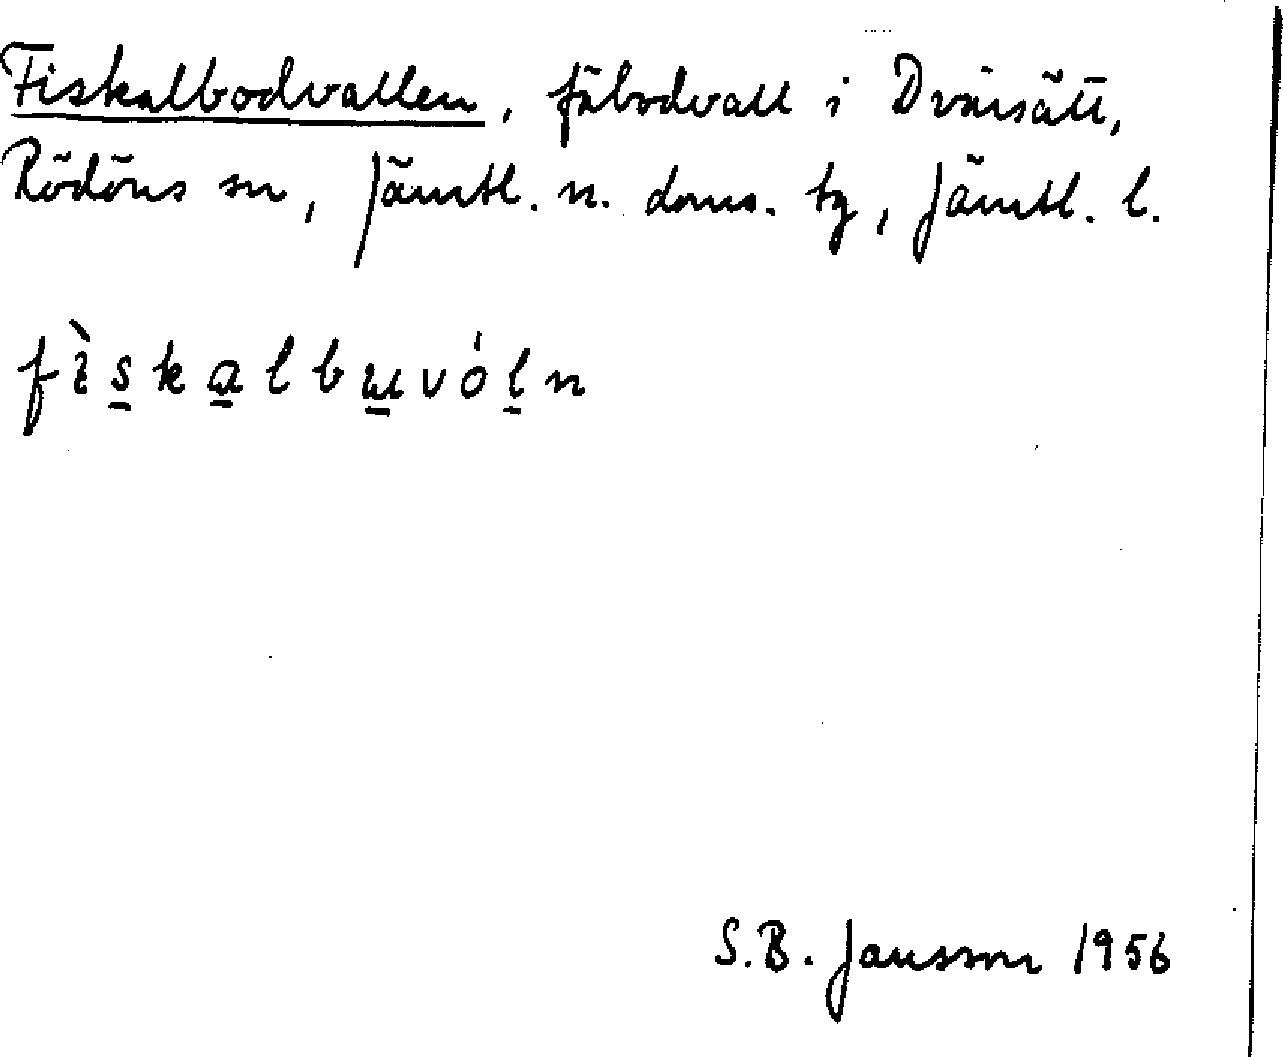 Fiskalbodvallen, fäbodvall i Dvärsätt,
Rödöns sn, Jämtl. n. doms. tg, Jämtl. l.
fìs̠ka̠lbu̠vól̠n
S.B. Jansson 1956